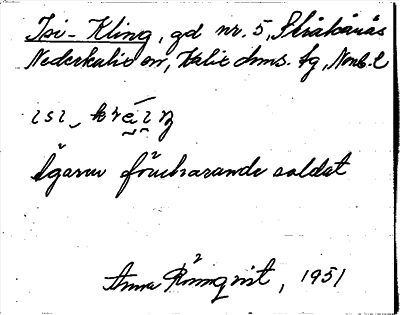 Isi-Kling, gd nr. 5, Skråkanäs
Nederkalix sn, Kalix dms. tg, Nordb. l
Ägaren förutvarande soldat
Anna Rönnqvist, 1951